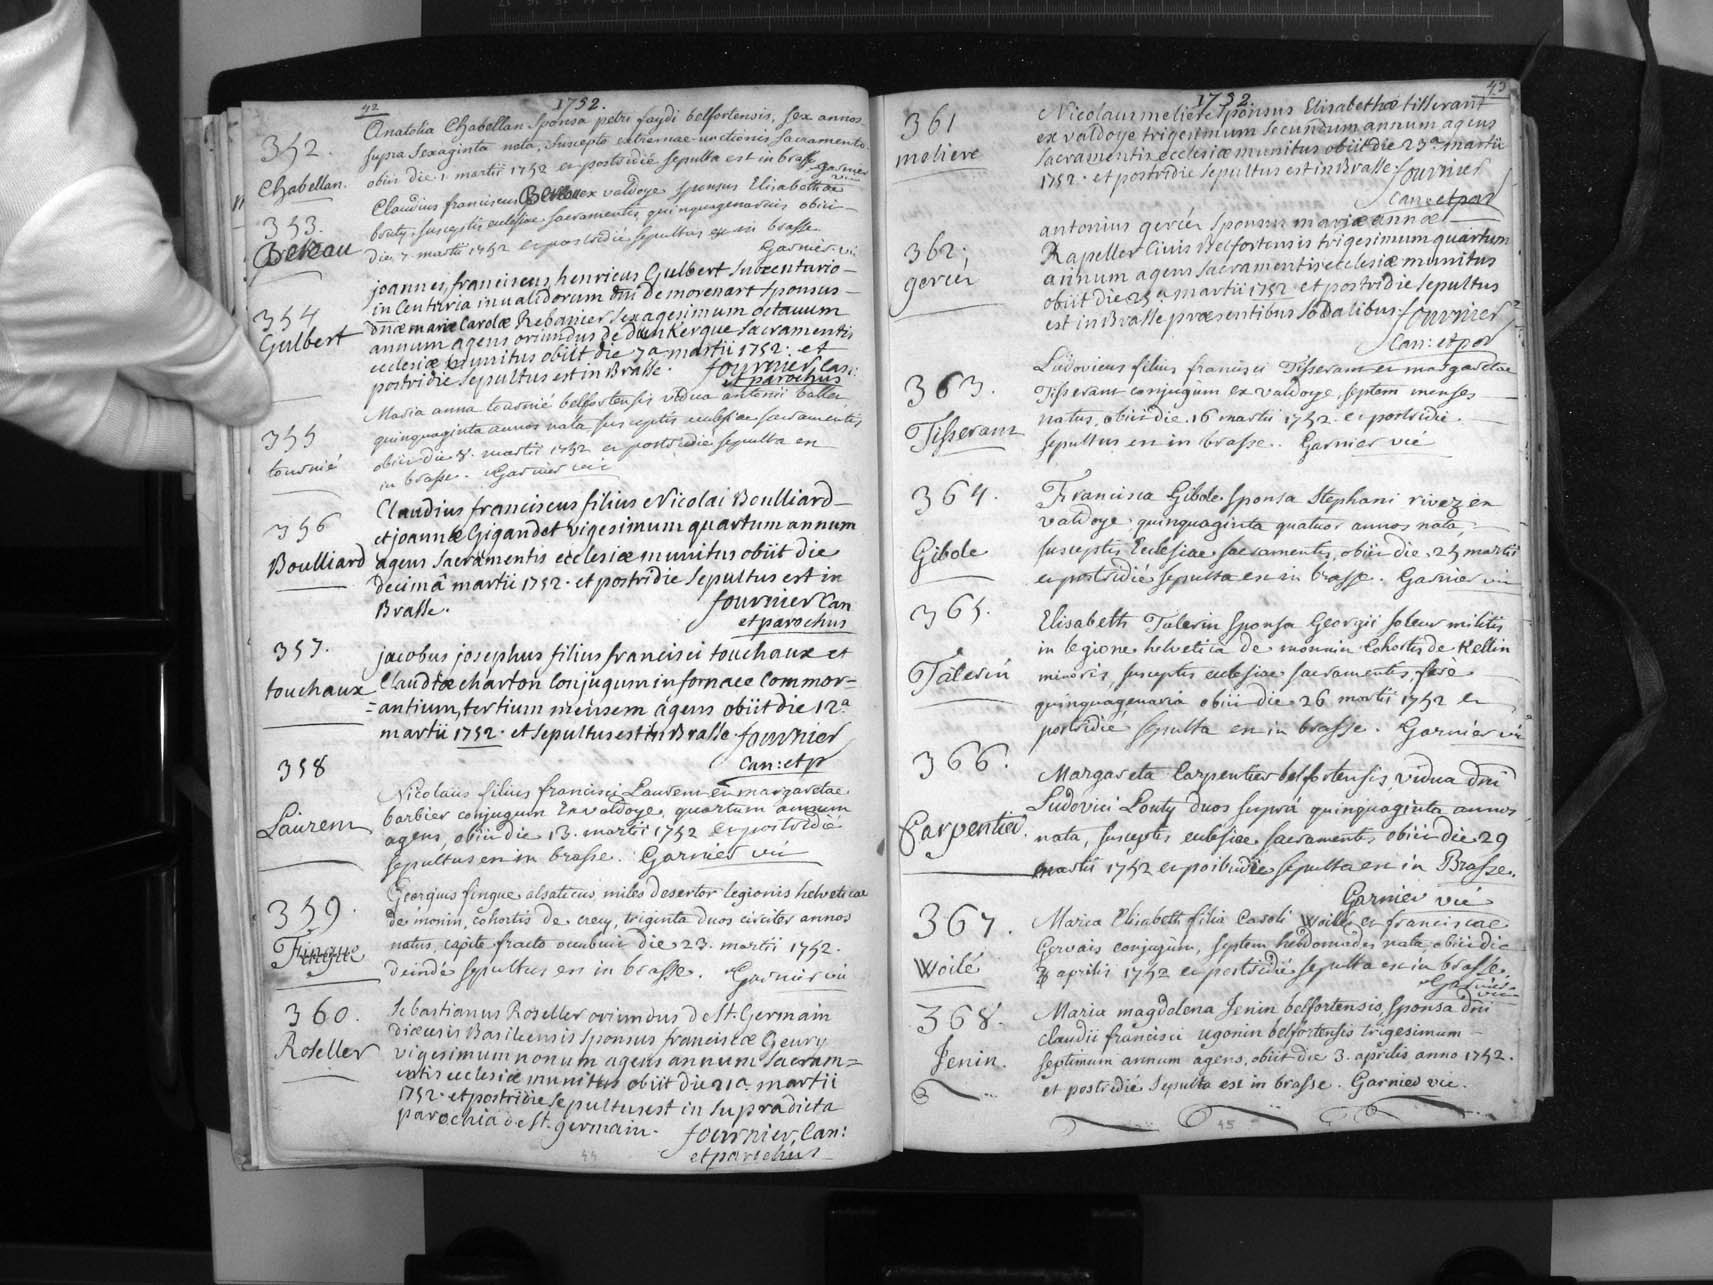 42
1752.
352.
Chabellan.
Anatolia Chabellan Sponsa petri faydi belfortensis, sex annos
supra sexaginta nata, suscepto extremae-unctionis sacramento
obiit die 1. martii 1752 et postridie sepulta est in brasse
garnier vic
353.
Claudius franciscus ex valdoye sponsus Elisabethae
susceptis ecclesiae sacramentis, quinquagenarius obiit
die 7 martii 1752 et postridie sepultus est in brasse
Garnier vi
354
Gulbert
joannes franciscus henricus Gulbert subcenturio
in Centuria invalidorum dni de morenart sponsus
dnae mariae Carolae Rebanier sexagesimum octauum
annum agens oriundus de dunkerque sacramentis
ecclesiae munitus obiit die 7a martii 1752. et
postridie sepultus est in Brasse. fournier, Can:
et parochus
355
tournié
Maria anna tournié belfortensis vidua antonii
quinquaginta annos nata susceptis ecclesiae sacramentis
obiit die 8. martii 1752 et postridie sepulta est
in brasse. Garnier vic
356
Boulliard
Claudius franciscus filius Nicolai Boulliard
et joannæ Gigandet vigesimum quartum annum
agens sacramentis ecclesiæ munitus obiit die
decimâ martii 1752. et postridie sepultus est in
Brasse.
fournier Can
et parochus
357.
touchaux
jacobus josephus filius francisci touchaux et
Claudiæ charton conjugum in fornace Commor=
=antium, tertium mensem agens obiit die 12.a
martii 1752. et sepultus est in Brasse. fournier
Can: et p
358
Laurent
Nicolaus filius francisci Laurent et margaretae
barbier conjugum Ex valdoye, quartum annum
agens, obiit die 13. martii 1752 et postridié
sepultus est in brasse. Garnier vic
359.
Fingue
Georgius fingue alsaticus, miles desertor legionis helveticae
de monin, cohortis de crecy, triginta duos circiter annos
natus, capite fracto occubuit die 23. martii 1752.
deindé sepultus est in brasse. Garnier vic
360.
Roseller
Sebastianus Roseller oriundus de St. Germain
diœcesis Basileensis sponsus franciscæ Geury
vigesimum nonum agens annum sacram=
entis ecclesiæ munitus obiit die 21a martii
1752. et postridie sepultus est in supradicta
parochia de St. germain.
fournier, Can:
et parochus
44
43
1752
361
moliere
Nicolaus moliere sponsus Elisabethæ tisserant
ex valdoye trigesimum secundum annum agens
sacramentis ecclesiæ munitus obiit die 23a martii
1752. et postridie sepultus est in Brasse. fournier
Can: et par
362.
gerier
antonius gerier sponsus mariæ annæ
Rapeller Civis Belfortensis trigesimum quartum
annum agens sacramentis ecclesiæ munitus
obiit die 25a martii 1752 et postridie sepultus
est in Brasse præsentibus sodalibus. fournier
Can: et par
363.
Tisserant
Ludovicus filius francisci Tisserant et margaretae
Tisserant conjugum ex valdoye, septem menses
natus, obiit die. 16 martii 1752. et postridié.
sepultus est in brasse. Garnier vic
364.
Gibole
Francisca Gibole sponsa Stephani rivez ex
valdoye quinquaginta quatuor annos nata
susceptis Ecclesiae sacramentis, obiit die. 25 martii
et postridie sepulta est in brasse. Garnier vic
365.
Talerin
Elisabeth Talerin sponsa Georgii soleur militis
in legione helvetica de monnin cohortis de Kellin
minoris, susceptis ecclesiae sacramentis, feré
quinquagenaria obiit die 26 martii 1752 et
postridie, sepulta est in brasse. Garnier vic
366.
Carpentier.
Margareta Carpentier belfortensis, vidua dni
Ludovici Louty duos suprà quinquaginta annos
nata, susceptis ecclesiae sacramentis obiit die 29
martii 1752 et postridie sepulta est in Brasse.
Garnier vic
367.
Woilé
Maria Elisabeth filia Caroli Woilé et franciscae
Gervais conjugum, septem hebdomades nata, obiit die
aprilis 1752 et postridié sepulta est in brasse.
Garnier vic
368.
Jenin.
Maria magdalena Jenin belfortensis, sponsa dni
claudii francisci ugonin belfortensis trigesimum
septimum annum agens, obiit die 3. aprilis anno 1752.
et postridié sepulta est in brasse. Garnier vic.
45